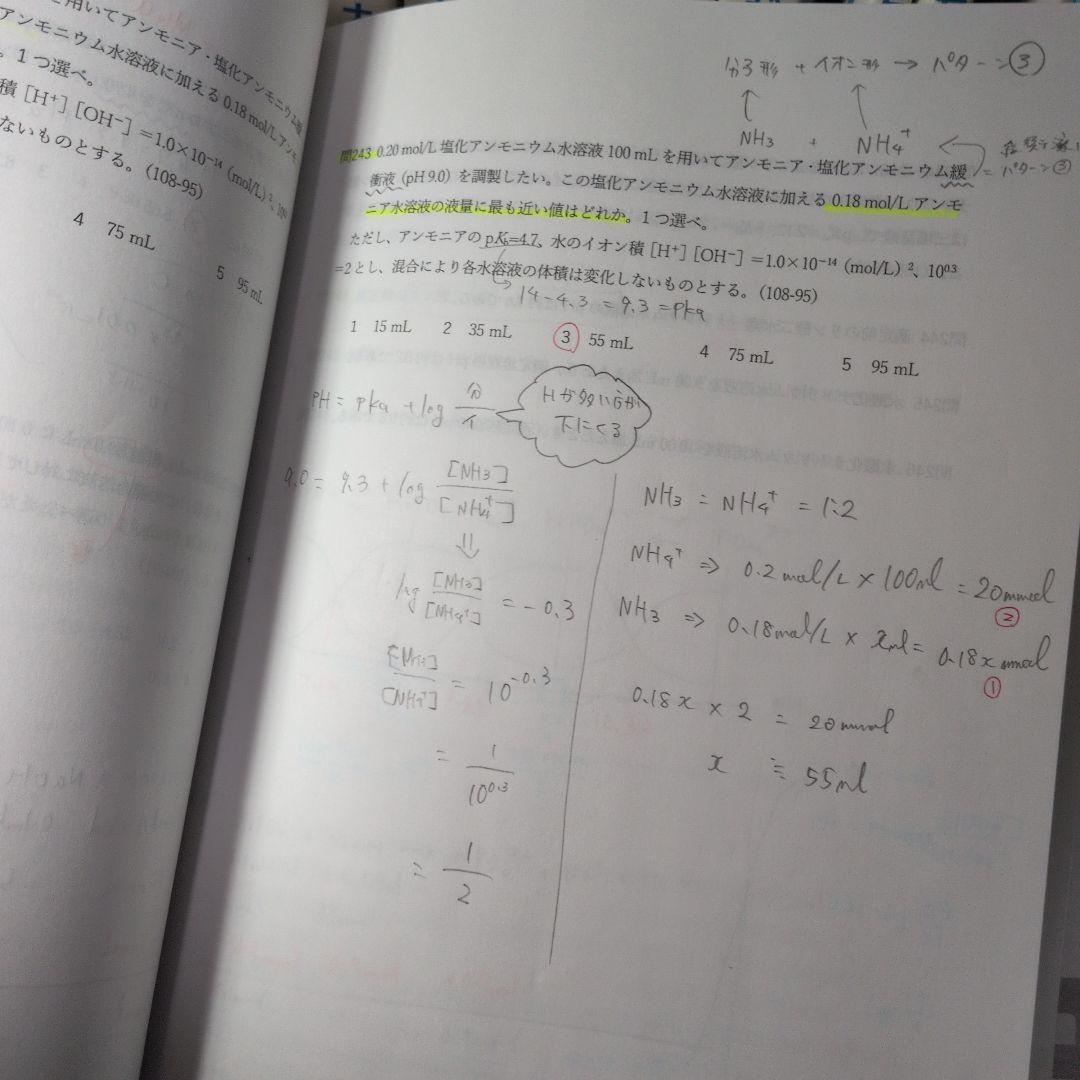 を用いてアンモニア・塩化アンモニウム緩
アンモニウム水溶液に加える 0.18 mol/L アンモ
。1つ選べ。
積 [H⁺] [OH⁻] =1.0×10⁻¹⁴ (mol/L) ²、10⁰
ないものとする。(108-95)
4 75 mL
5 95 mL
分子形 + イオン形 → パターン③
NH3 + NH4⁺
パターン③
問243 0.20 mol/L 塩化アンモニウム水溶液 100 mL を用いてアンモニア・塩化アンモニウム緩
衝液 (pH 9.0) を調製したい。この塩化アンモニウム水溶液に加える 0.18 mol/L アンモ
ニア水溶液の液量に最も近い値はどれか。1つ選べ。
ただし、アンモニアの pKb=4.7、水のイオン積 [H⁺] [OH⁻] =1.0×10⁻¹⁴ (mol/L) ²、10⁰·³
=2とし、混合により各水溶液の体積は変化しないものとする。(108-95)
14-4.3 = 9.3 = pka
1 15 mL 2 35 mL 3 55 mL 4 75 mL 5 95 mL
PH = pka + log 分/イ
Hが多い方が
下にくる
9.0 = 9.3 + log [NH3]/[NH4⁺]
⇓
log [NH3]/[NH4⁺] = -0.3
[NH3]/[NH4⁺] = 10⁻⁰·³
= 1/10⁰·³
= 1/2
NH3 = NH4⁺ = 1:2
NH4⁺ ⇒ 0.2 mol/L × 100ml = 20mmol
②
NH3 ⇒ 0.18mol/L × xml = 0.18x mmol
①
0.18x × 2 = 20mmol
x ≒ 55ml